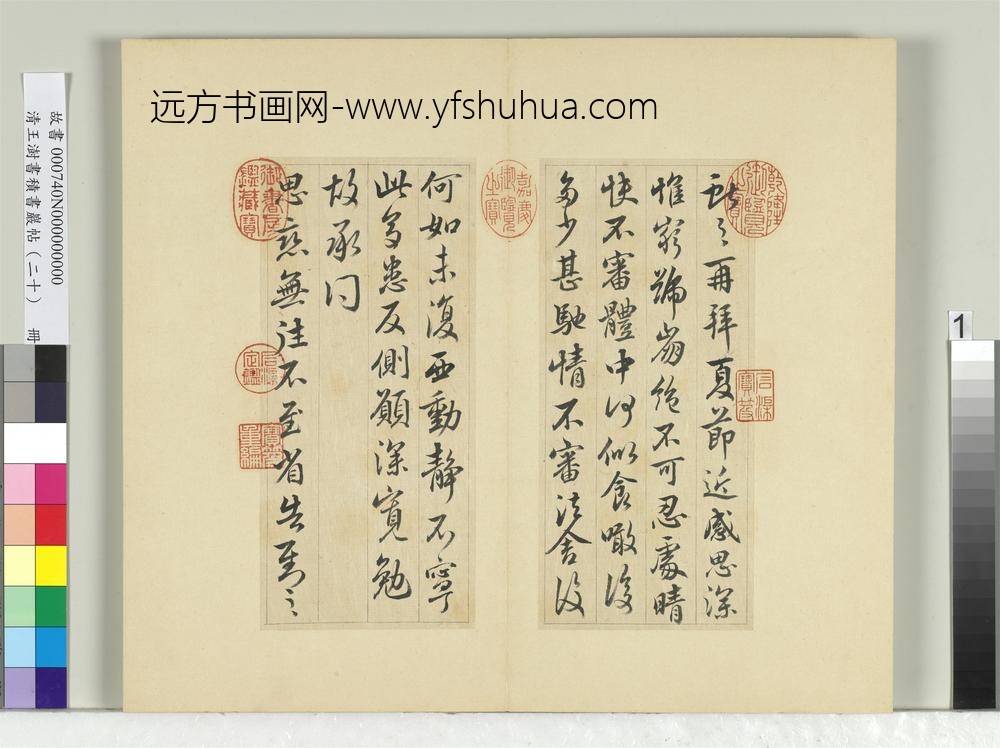 远方书画网-www.yfshuhua.com
故書 000740N000000000
清王澍書積書巖帖（二十） 冊
獻之再拜夏節近感思深
惟窮號崩絕不可忍處晴
快不審體中何似食噉復
多少甚馳情不審諸舍復
何如未復西動靜不寧
此多患反側願深寬勉
故承問
思戀無往不至省告對之
乾隆御覽之寶
石渠寶笈
嘉慶御覽之寶
御書房鑑藏寶
石渠定鑑
寶笈重編
1